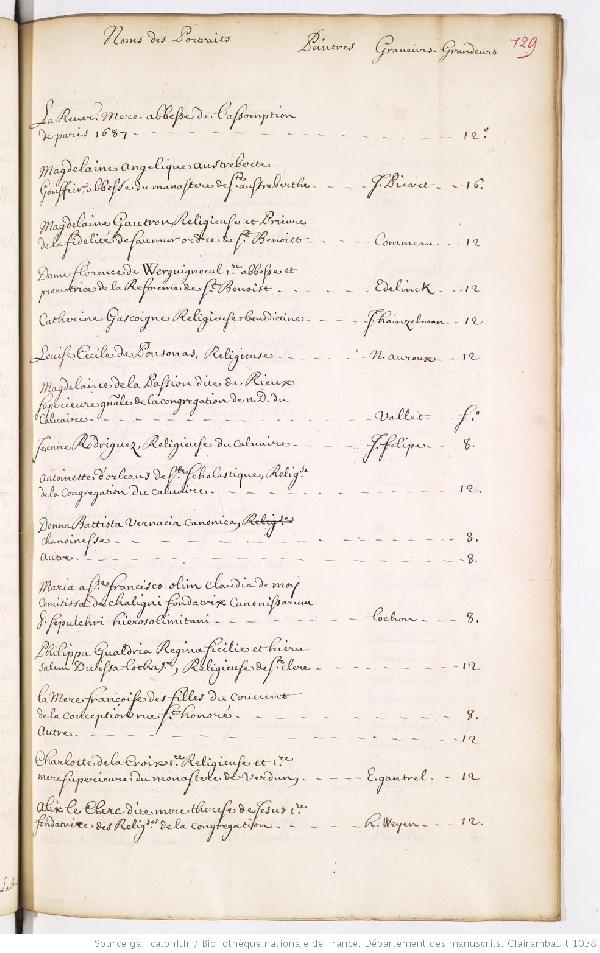 Noms des Portraits Peintres Graveurs. Grandeurs 129
La Rever. Mere abbesse de l'assomption
de paris 1687 - - - 12°
Magdelaine Angelique Austreberte
Gouffier abbesse du monastere de ste austreberthe - - - J. Picart - 16.
Magdelaine Gautron, Religieuse et Prieure
de la fidelité de saumur ordre de st. Benoist - - - Commeau - 12
Dame florence de Werguignoeul 1re abbesse et
promotrice de la Reforme de st. Benoist - - - Edelinck - 12
Catherine Gascoigne Religieuse benedictine - - - J. hainzelman - 12
Louise Cecile de Ponsonas, Religieuse - - - N. auroux - 12
Magdelaine de la Passion dite de Rieux
superieure gnale de la congregation de n. D. du
Calvaire - - - Vallet - f.°
Jeanne Rodriguez, Religieuse du Calvaire - - - J. felipe - 8.
Antoinette d'orleans de ste scholastique, Religse
de la Congregation du calvaire - - - 12.
Donna Battista Vernacia Canonica, Religse
chanoinesse - - - 8.
Autre - - - 8.
Maria a ste francisco olim Claudia de moy
comitissa de chaligni fondatrix Canonissarum
S. sepulchri hierosolimitani - - - lochon - 8.
Philippa Gualdria Regina sicilie et hieru
salem Ducissa lothare, Religieuse de ste clere - - - 12
la Mere françoise des filles du couvent
de la conception rue st honoré - - - 8.
Autre - - - 12
Charlotte de la Croix 1re Religieuse et 1re
mere superieure du monastere de Verdun, - - - E. gantrel - 12
Alix le Clerc dite mere therese de Jesus 1re
fondatrice des Religses de la Congregation - - - h. Weyen - 12.
Source gallica.bnf.fr / Bibliothèque nationale de France. Département des manuscrits. Clairambault 1038